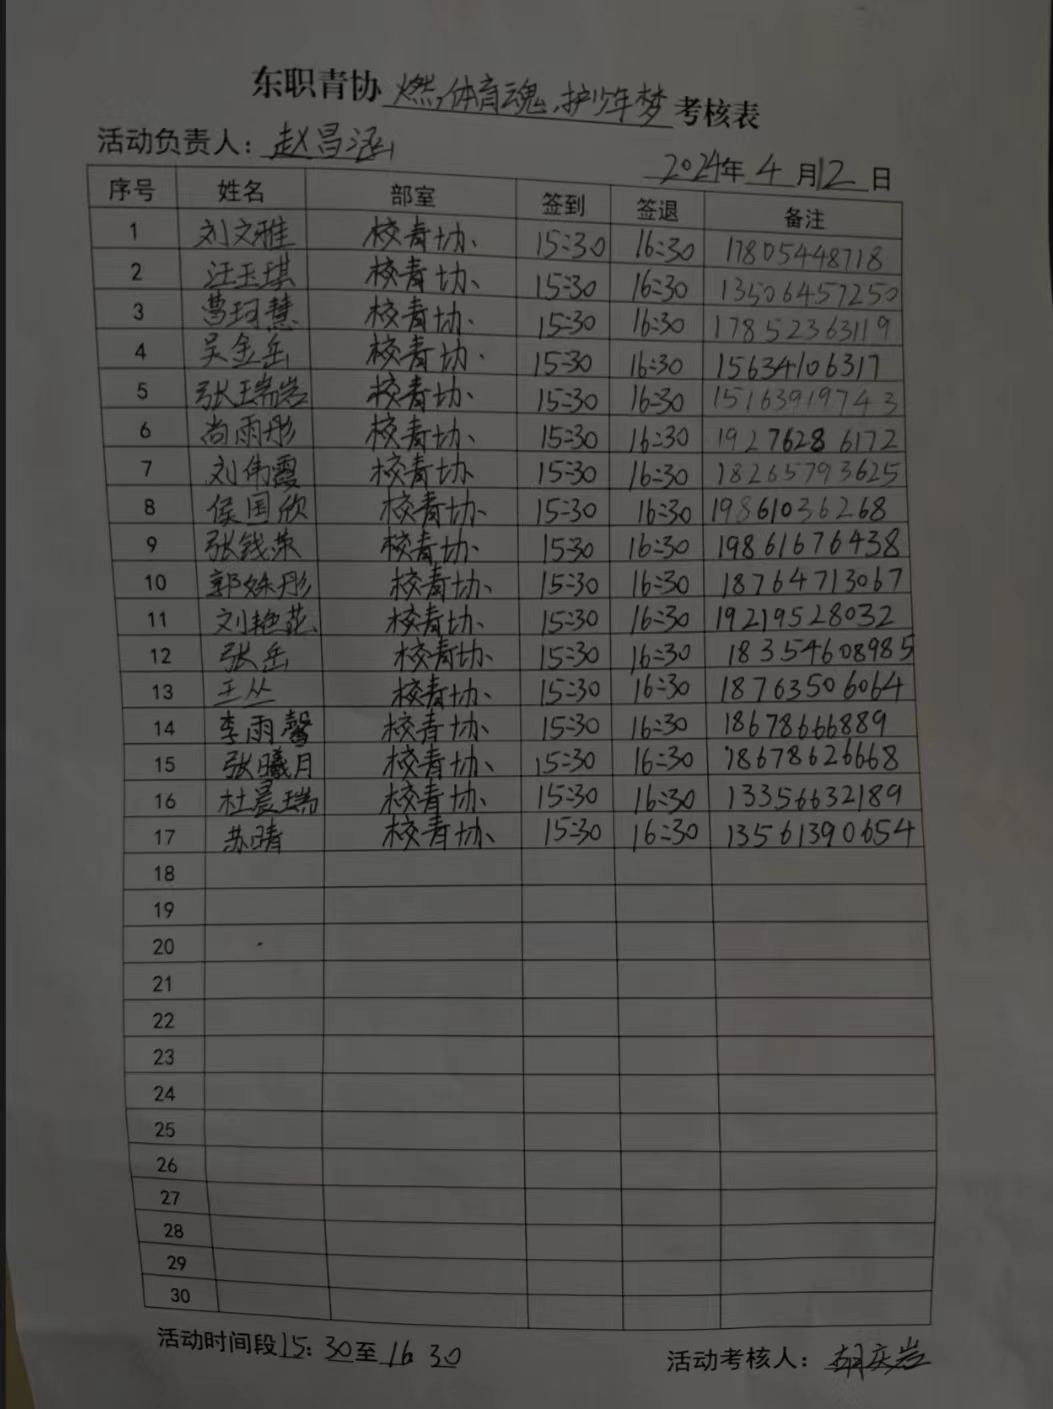 东职青协 燃体育魂、护少年梦 考核表
活动负责人：赵昌涵
2024年4月12日
序号 姓名 部室 签到 签退 备注
1 刘文雅 校青协、 15:30 16:30 17805448718
2 汪玉琪 校青协、 15:30 16:30 13506457250
3 曹珂慧 校青协、 15:30 16:30 17852363119
4 吴金岳 校青协、 15:30 16:30 15634106317
5 张瑞岩 校青协、 15:30 16:30 15163919743
6 尚雨彤 校青协、 15:30 16:30 19276286172
7 刘伟霞 校青协、 15:30 16:30 18265793625
8 侯国欣 校青协、 15:30 16:30 19861036268
9 张钱荣 校青协、 15:30 16:30 19861676438
10 郭姝彤 校青协、 15:30 16:30 18764713067
11 刘艳花 校青协、 15:30 16:30 19219528032
12 张岳 校青协、 15:30 16:30 18354608985
13 王丛 校青协、 15:30 16:30 18763506064
14 李雨馨 校青协、 15:30 16:30 18678666889
15 张曦月 校青协、 15:30 16:30 18678626668
16 杜晨瑞 校青协、 15:30 16:30 13356632189
17 苏晴 校青协、 15:30 16:30 13561390654
18
19
20
21
22
23
24
25
26
27
28
29
30
活动时间段15：30至16 30
活动考核人：胡庆岩